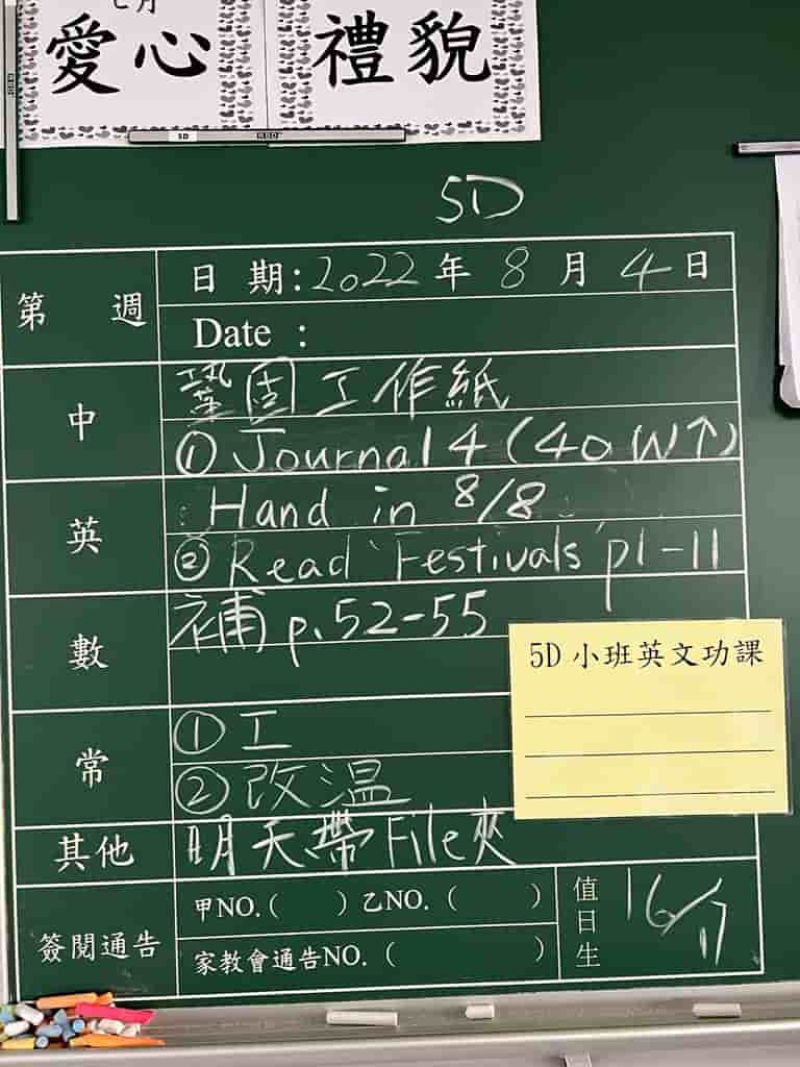 七月
愛心 禮貌
5D
第 週 日 期:2022年 8 月 4 日
Date :
中 鞏固工作紙
① Journal 4 (40 W↑)
英 : Hand in 8/8
② Read 'Festivals' p1-11
數 補 p.52-55
5D 小班英文功課
常 ① 工
② 改温
其他 明天帶File夾
簽閱通告 甲NO.( ) 乙NO.( )
家教會通告NO.( )
值日生 16/17